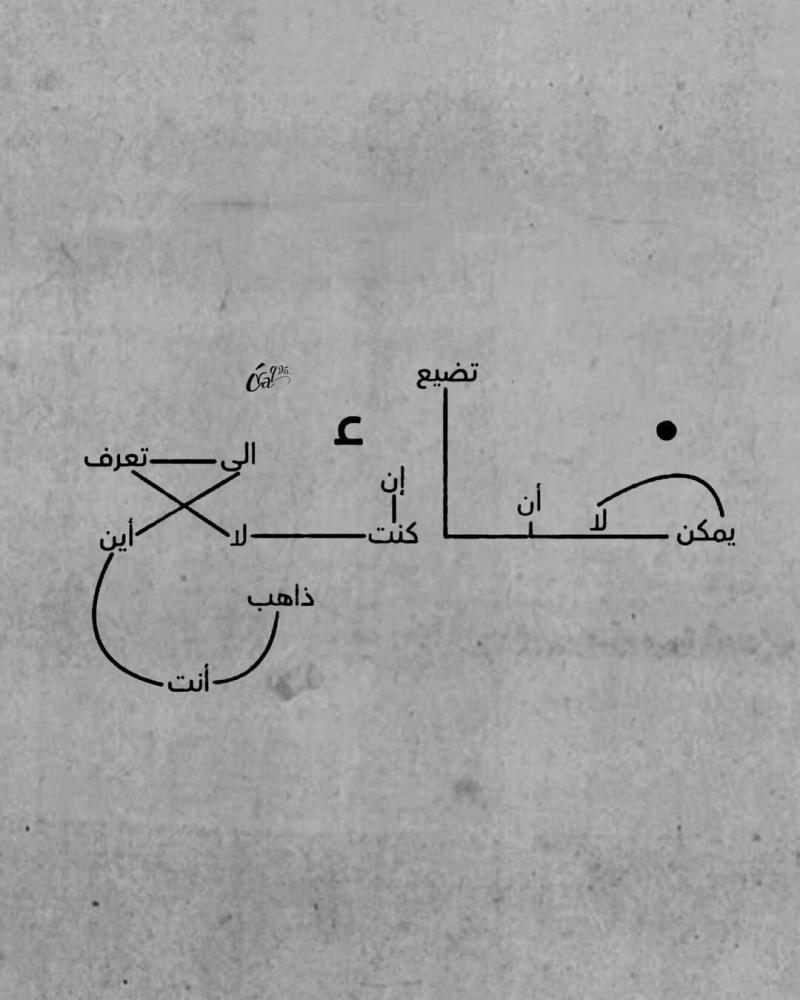 لا
يمكن
أن
تضيع
إن
كنت
لا
تعرف
الى
أين
أنت
ذاهب